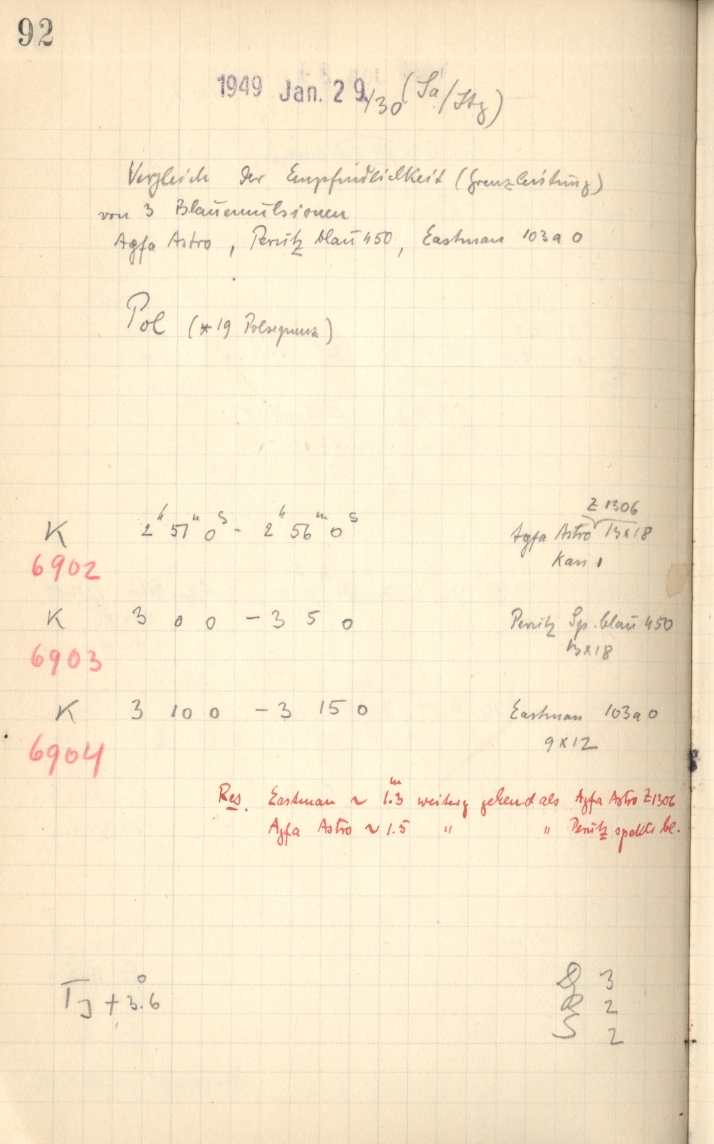 92
1949 Jan. 29/30 (Sa/Stg)
Vergleich der Empfindlichkeit (Grenzleistung)
von 3 Blauemulsionen
Agfa Astro, Perutz blau 450, Eastman 103a O
Pol (* 19 Polsequenz)
Z 1306
K 2h 51m 0s - 2h 56m 0s Agfa Astro 13x18
6902 Kass 1
K 3 0 0 - 3 5 0 Perutz Sp. blau 450
6903 13x18
K 3 10 0 - 3 15 0 Eastman 103a O
6904 9x12
Res. Eastman ~ 1.3m weiterg gehend als Agfa Astro Z1306
Agfa Astro ~ 1.5 " " Perutz spektr bl.
TJ + 3.6°
D 3
R 2
S 2